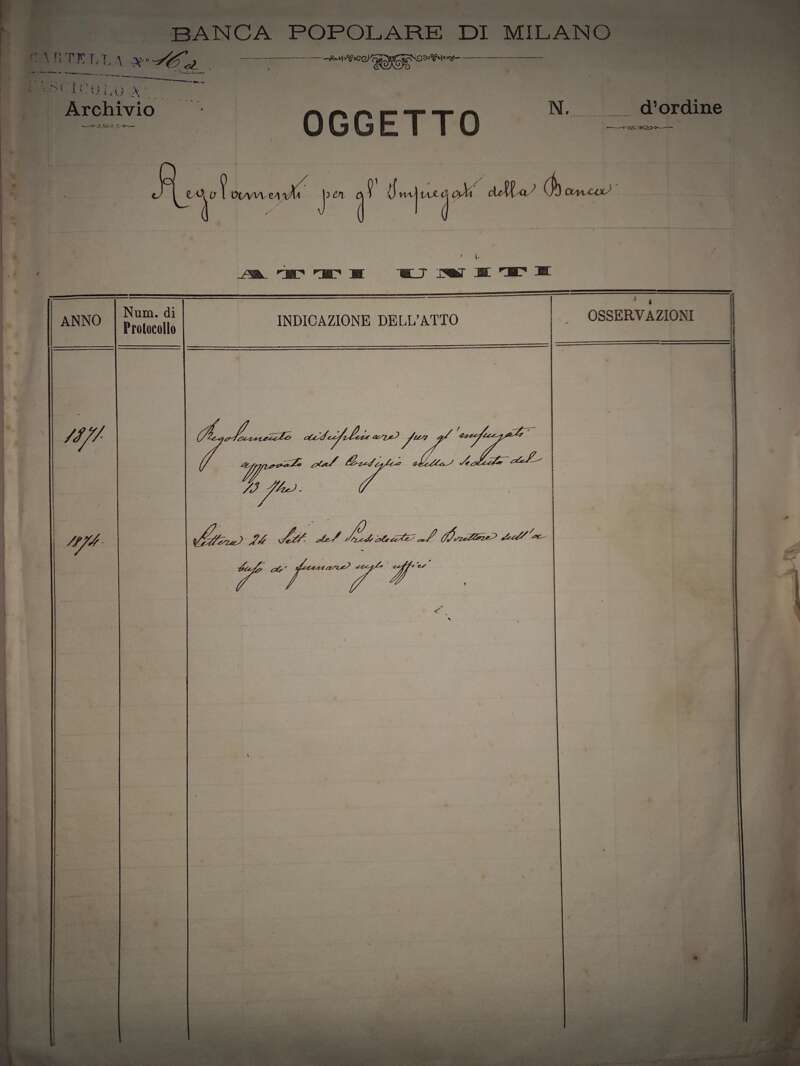 BANCA POPOLARE DI MILANO
CARTELLA N. 16a
FASCICOLO N
Archivio
OGGETTO
N. d'ordine
Regolamenti per gl'Impiegati della Banca
ATTI UNITI
ANNO
Num. di Protocollo
INDICAZIONE DELL'ATTO
OSSERVAZIONI
1871.
Regolamento disciplinare per gl'impiegati
approvato dal Consiglio nella seduta del
13 7bre.
1874.
Lettera 24 Sett. del Presidente al Direttore sull'a
buso di fumare negli uffici